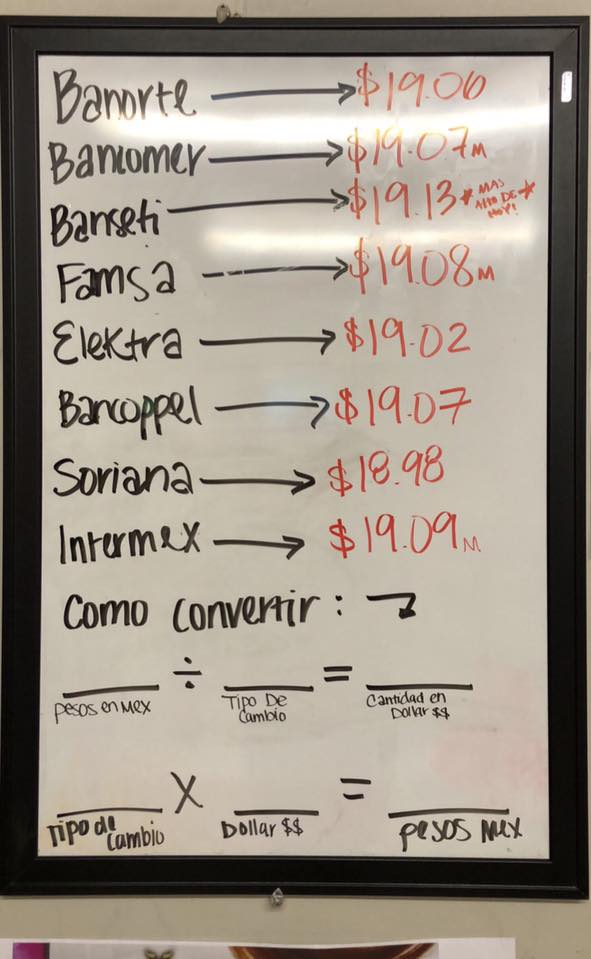 Banorte → $19.06
Bancomer → $19.07 M
Banseti → $19.13 * MAS ALTO DE HOY! *
Famsa → $19.08 M
Elektra → $19.02
Bancoppel → $19.07
Soriana → $18.98
Intermex → $19.09 M
Como convertir:
____ ÷ ____ = ____
pesos en Mex Tipo De Cambio Cantidad en Dollar $$
____ X ____ = ____
Tipo de Cambio Dollar $$ pesos Mex